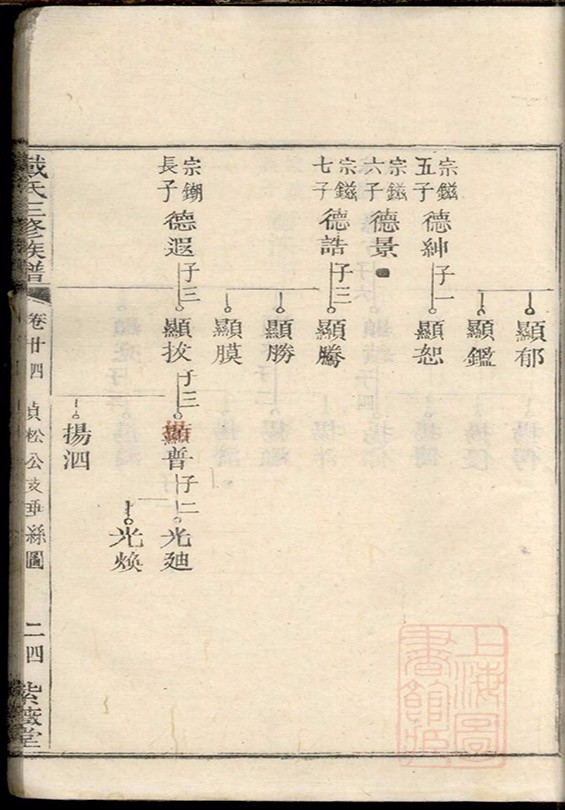 宗鎡
五子
德紳
子一
宗鎡
六子
德景
宗鎡
七子
德誥
子三
宗鎙
長子
德遐
子三
顯郁
顯鑑
顯恕
顯騰
顯勝
顯膜
顯拔
子三
普
子二
揚泗
光廸
光煥
戴氏三修族譜
卷廿四
貞松公支垂絲圖
二四
紫薇堂
上海圖
書館藏